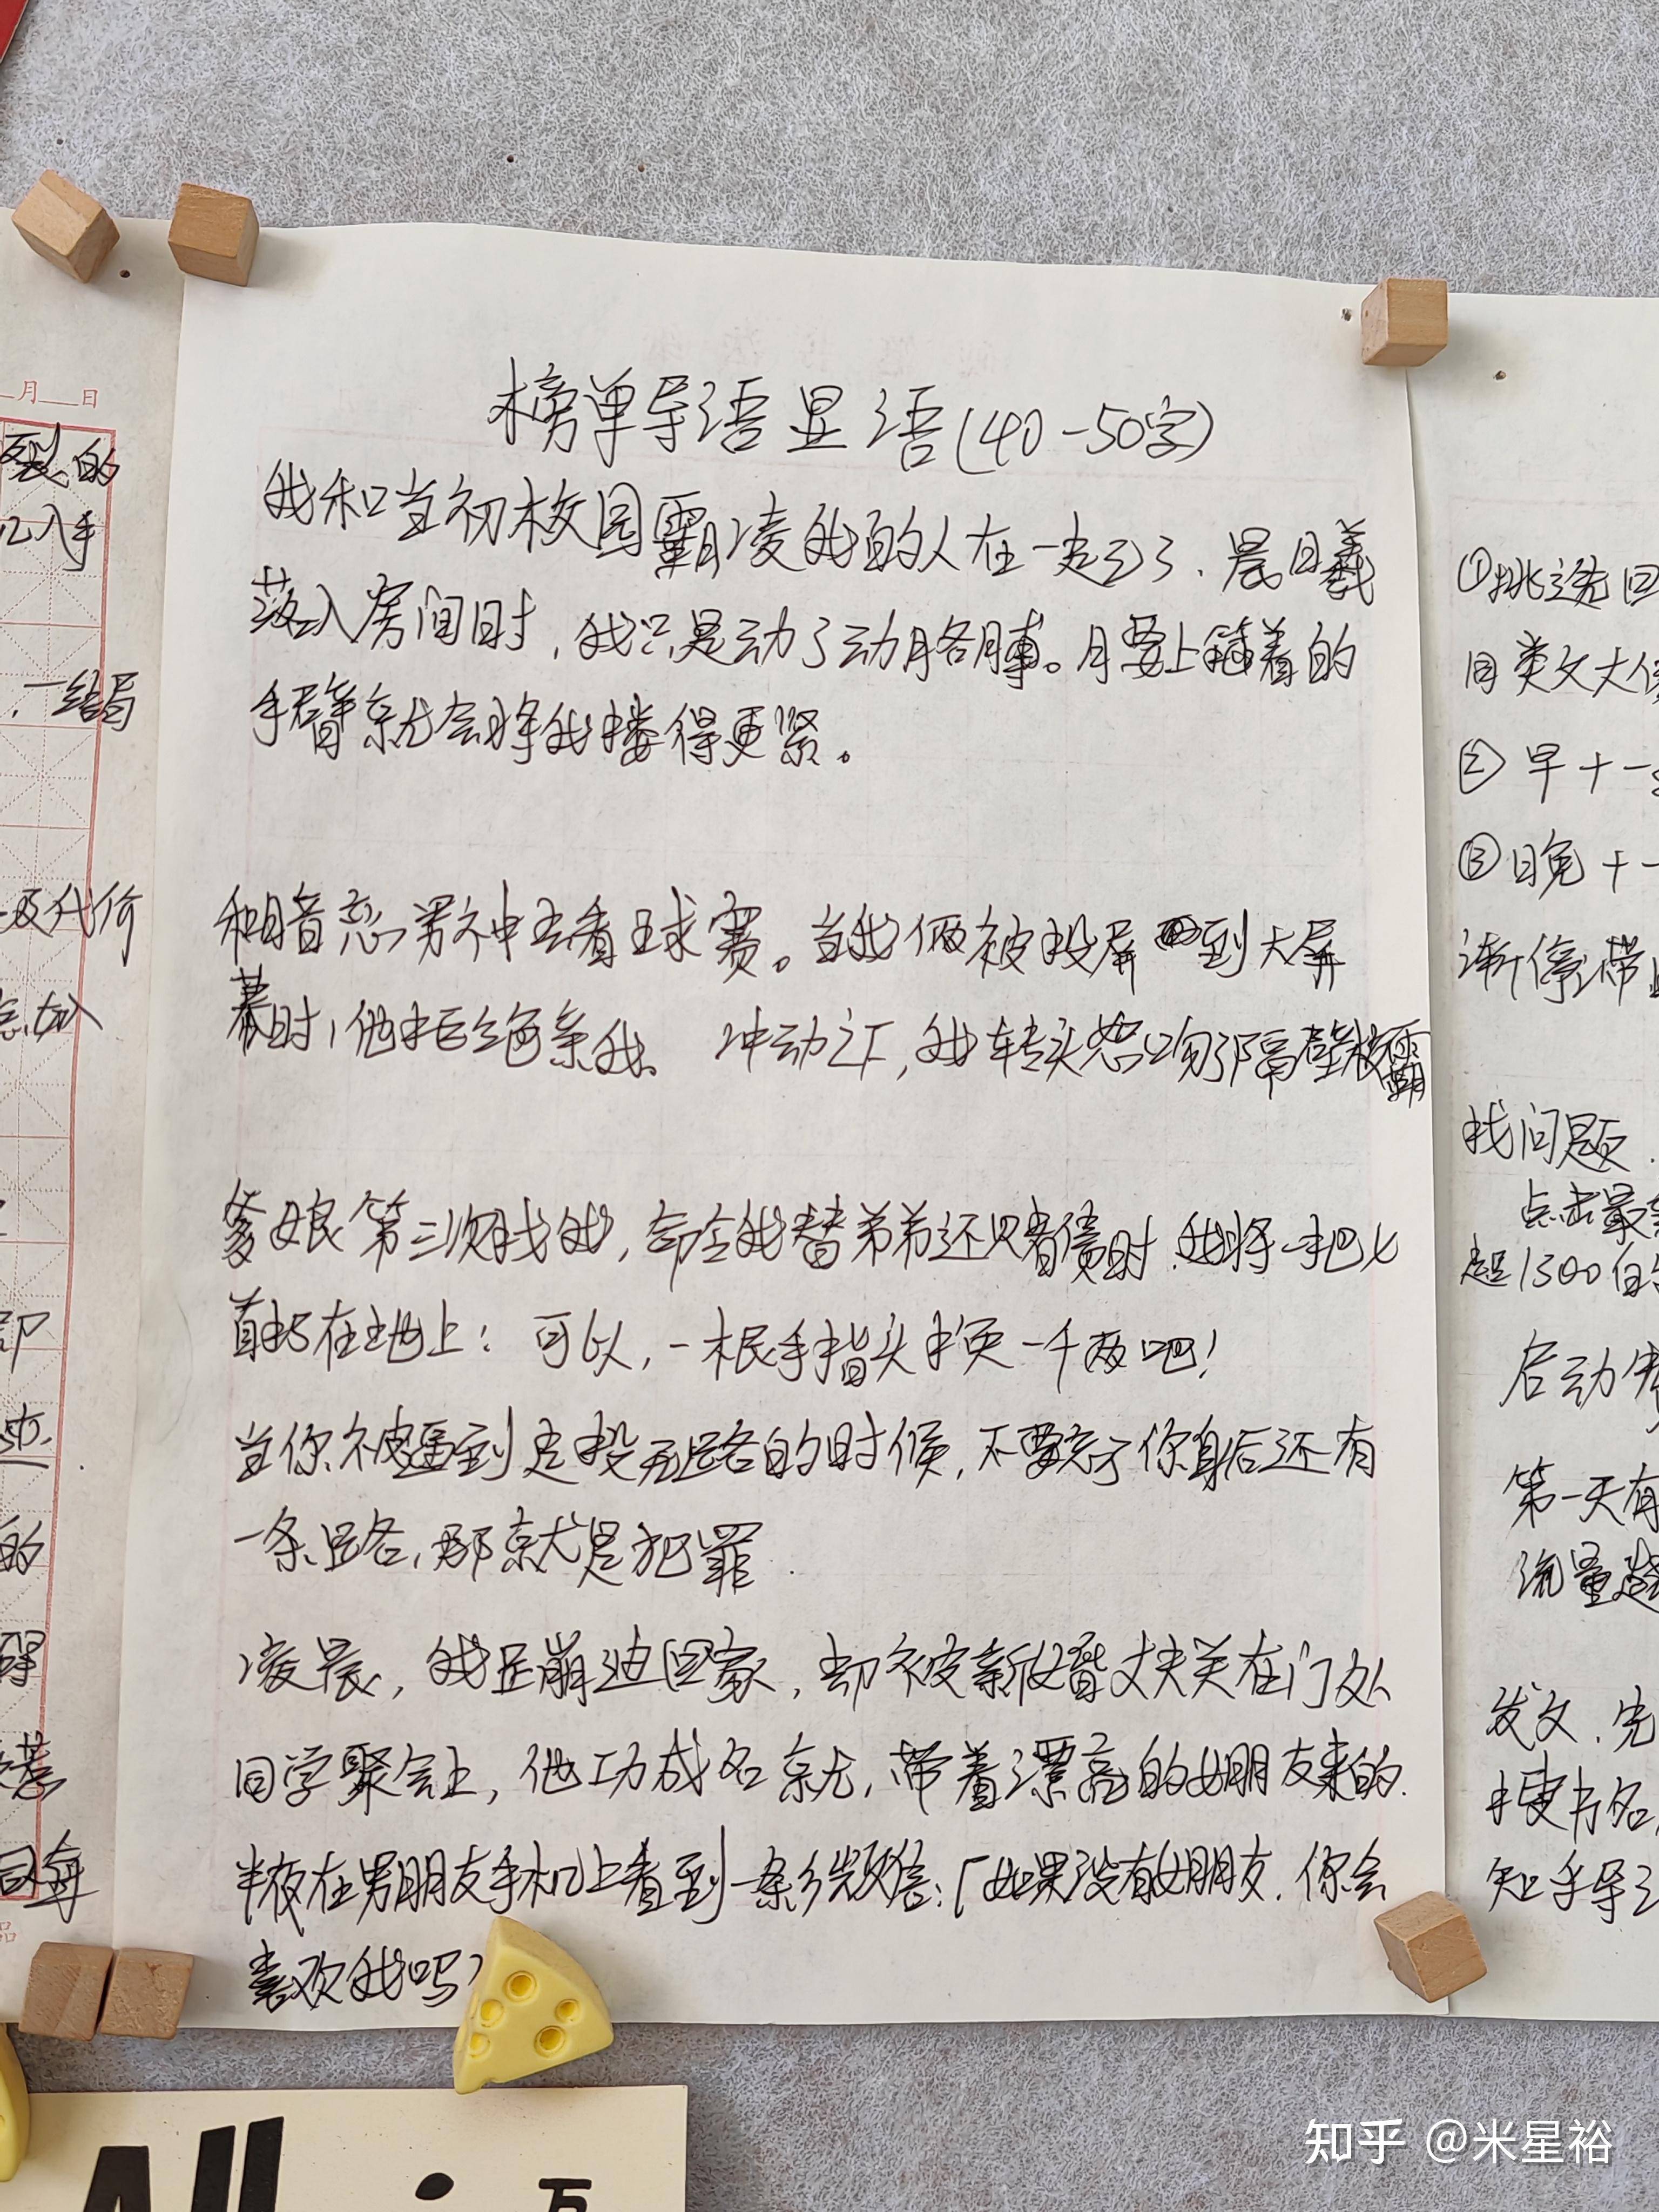 月 日
裂的
亿入手
一结局
代价
的
同每
榜单导语显语(40-50字)
我和当初校园霸凌我的人在一起了、晨曦
落入房间时,我只是动了动胳膊。腰上箍着的
手臂就会将我搂得更紧。
和暗恋男神去看球赛。当我俩被投屏到大屏
幕时,他拒绝亲我。冲动之下,我转头怒吻了隔壁校霸
爹娘第三次找我,命令我替弟弟还赌债时.我将一把匕
首扔在地上:可以,一根手指头换一千两吧!
当你被逼到走投无路的时候,不要忘了你身后还有
一条路,那就是犯罪.
凌晨,我蹦迪回家,却被新婚丈夫关在门外
同学聚会上,他功成名就,带着漂亮的女朋友来的.
半夜在男朋友手机上看到一条短信:「如果没有女朋友.你会
喜欢我吗?
①挑选回
同类文大
②早十一
③晚十一
渐停滞
找问题.
点击最
超1500自
启动
第一天有
流量
发文.先
搜书名,
知乎导
All
万
知乎 @米星裕